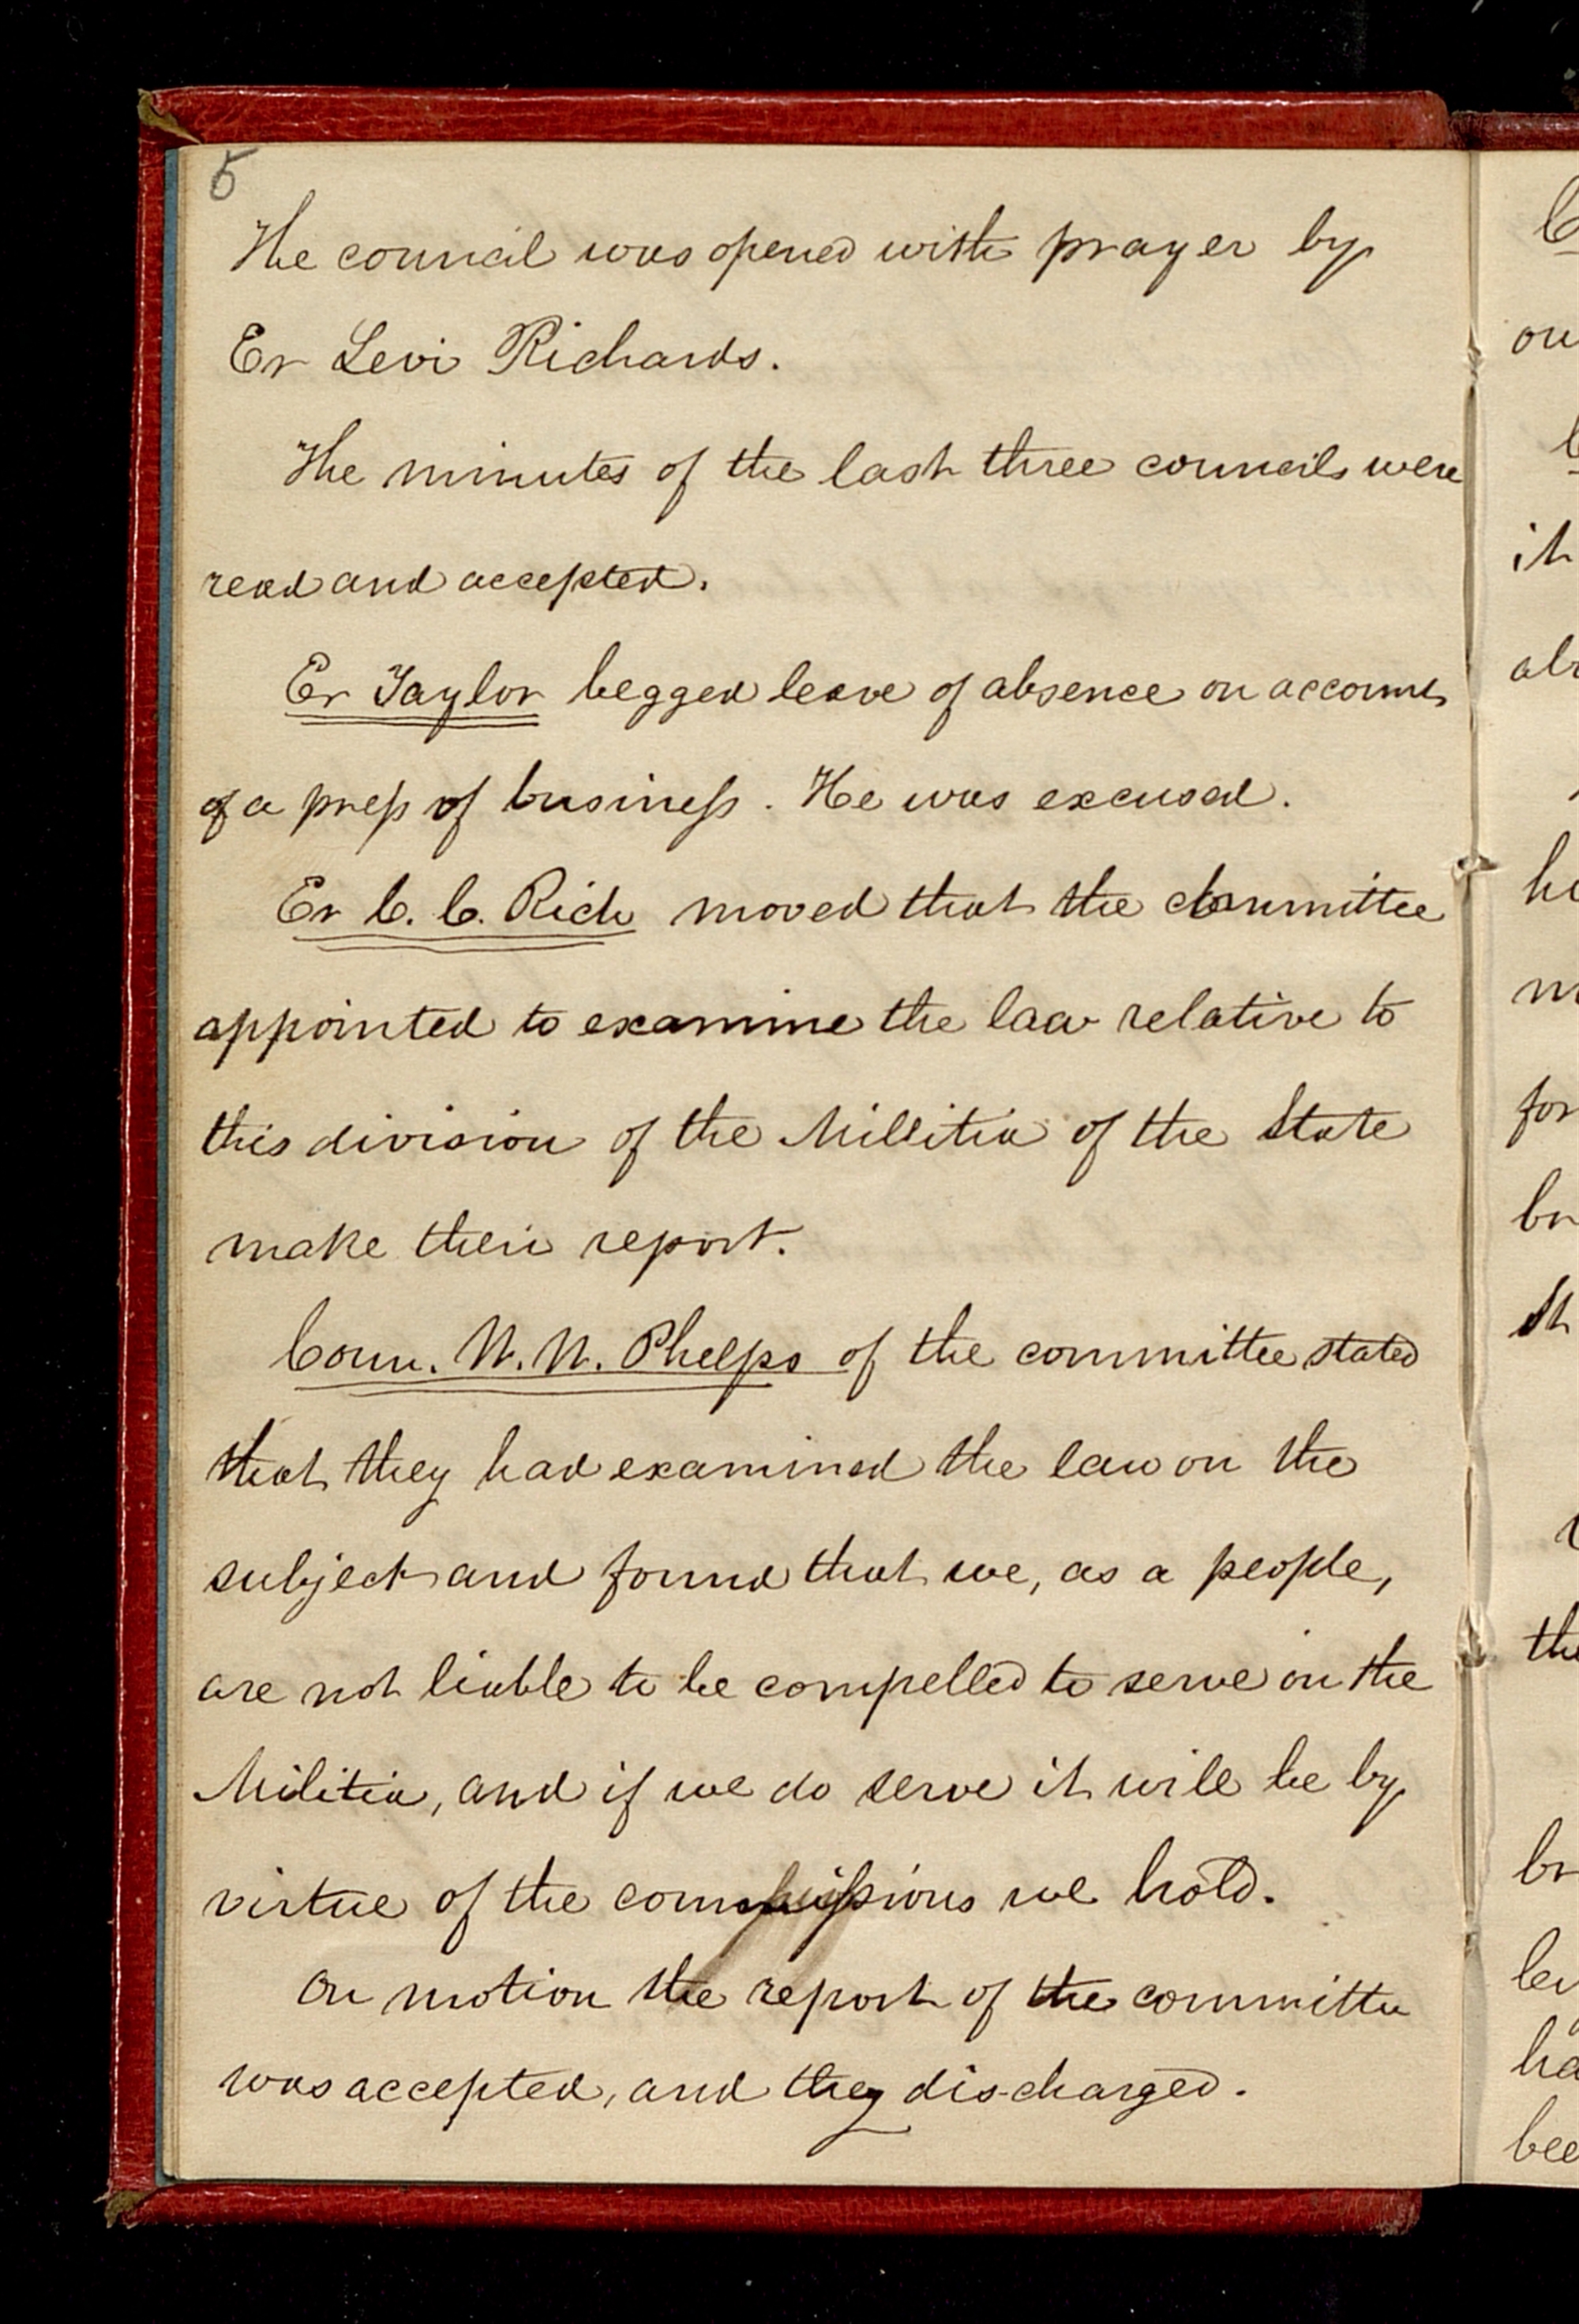 5
The council was opened with prayer by
Er Levi Richards.
The minutes of the last three councils were
read and accepted.
Er Taylor begged leave of absence on account
of a press of business. He was excused.
Er C. C. Rich moved that the committee
appointed to examine the law relative to
this division of the Millitia of the State
make their report.
Coun. W. W. Phelps of the committee stated
that they had examined the law on the
subject and found that we, as a people,
are not liable to be compelled to serve in the
Militia, and if we do serve it will be by
virtue of the commissions we hold.
On motion the report of the committee
was accepted, and they discharged.